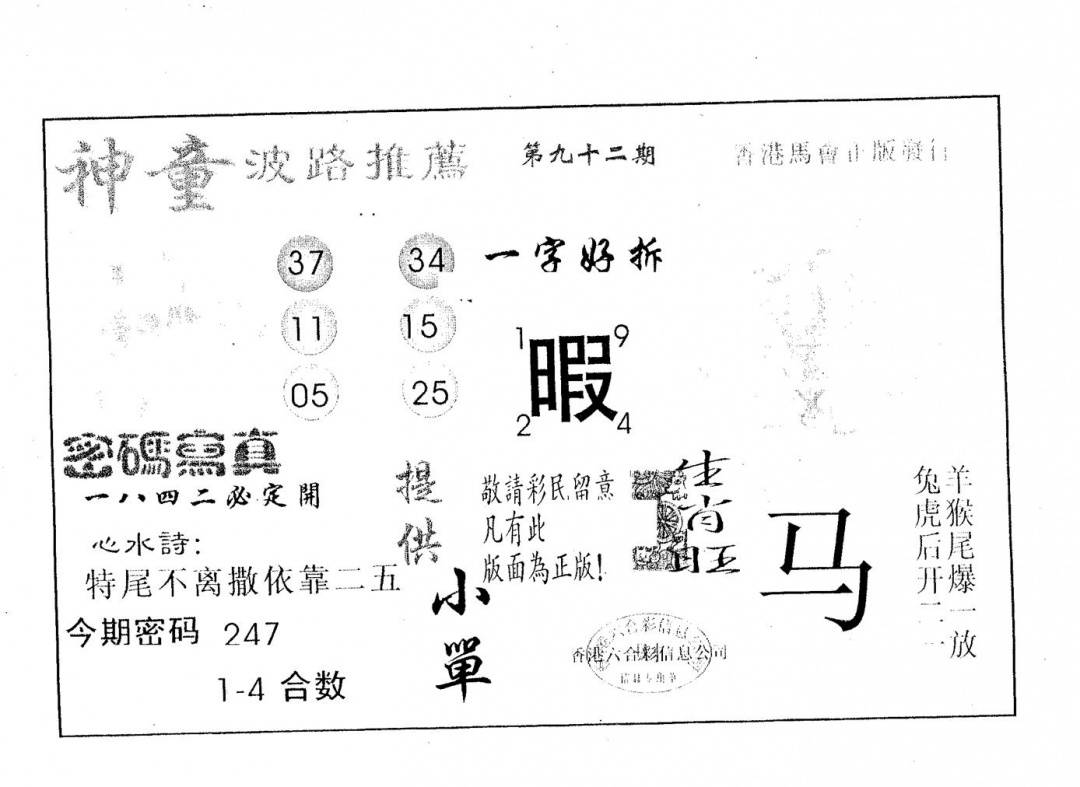 神童波路推薦
第九十二期
香港馬會正版發行
37 34
11 15
05 25
一字好拆
1 9
暇
2 4
密碼寫真
一八四二必定開
心水詩：
特尾不离撒依靠二五
今期密码 247
1-4 合数
提供
小單
敬請彩民留意
凡有此
版面為正版!
生肖旺
马
羊猴尾爆一放
兔虎后开二一
六合彩信息
香港六合彩信息公司